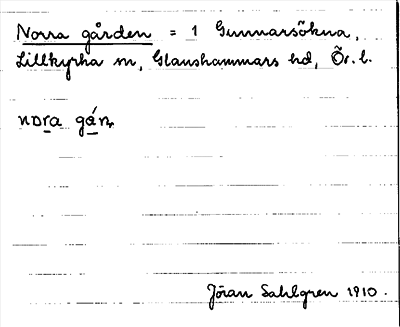 Norra gården = 1 Gunnarsökna,
Lillkyrka sn, Glanshammars hd, Ör. l.
nora gán
Jöran Sahlgren 1910.